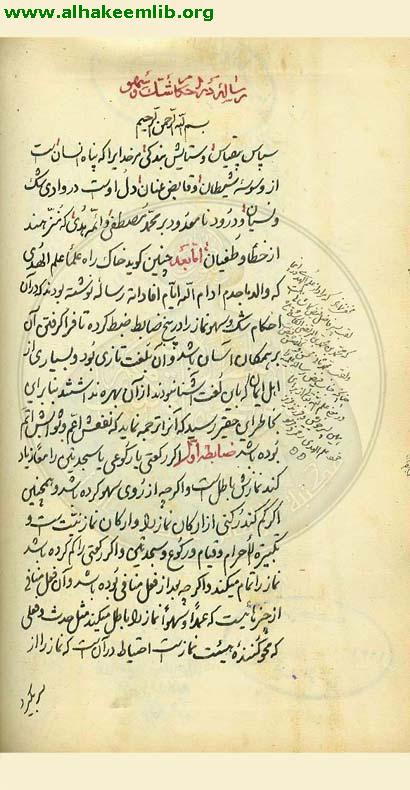 www.alhakeemlib.org
رساله در احکام شک و سهو
بسم الله الرحمن الرحیم
سپاس بیقیاس و ستایش مر خدایرا که پناه انسان است
از وسوسه شیطان و قابض عنان دل اوست در وادی شک
و نسیان و درود نامعدود بر محمد مصطفی و ائمه هدی که منزهند
از خطا و طغیان اما بعد چنین کوید خاک راه علما علم الهدی
که والد ماجدم ادام الله ایام افاداته رساله نوشته بودند که در آن
احکام شک و سهو نماز را در پنج ضابط ضبط کرده تا فرا کرفتن آن
بر همکان آسان شد و آن بلغت تازی بود و بسیاری از
اهل ایمان که بآن لغت آشنا نبودند از آن بهره نداشتند بنا برای
بخاطر این حقیر رسید که آنرا ترجمه نماید که نفعش اعم و ثوابش اتم
بوده باشد ضابطه اول اکر رکعتی یا رکوعی یا سجدتین را معا زیاد
کند نمازش باطل است و اکر چه از روی سهو کرده باشد و همچنین
اکر کم کند رکنی از ارکان نماز را و ارکان نماز نیت است و
تکبیرة الاحرام و قیام و رکوع و سجدتین و اکر رکعتی را کم کرده باشد
نماز را تمام میکند و اکر چه بعد از فعل منافی بوده باشد و آن فعل منافی
از چیزهائیست که عمدا و سهوا نماز را باطل میکند مثل حدث و فعلی
که محو کننده هیئت نماز است احتیاط در آن است که نماز را از
سر بگیرد